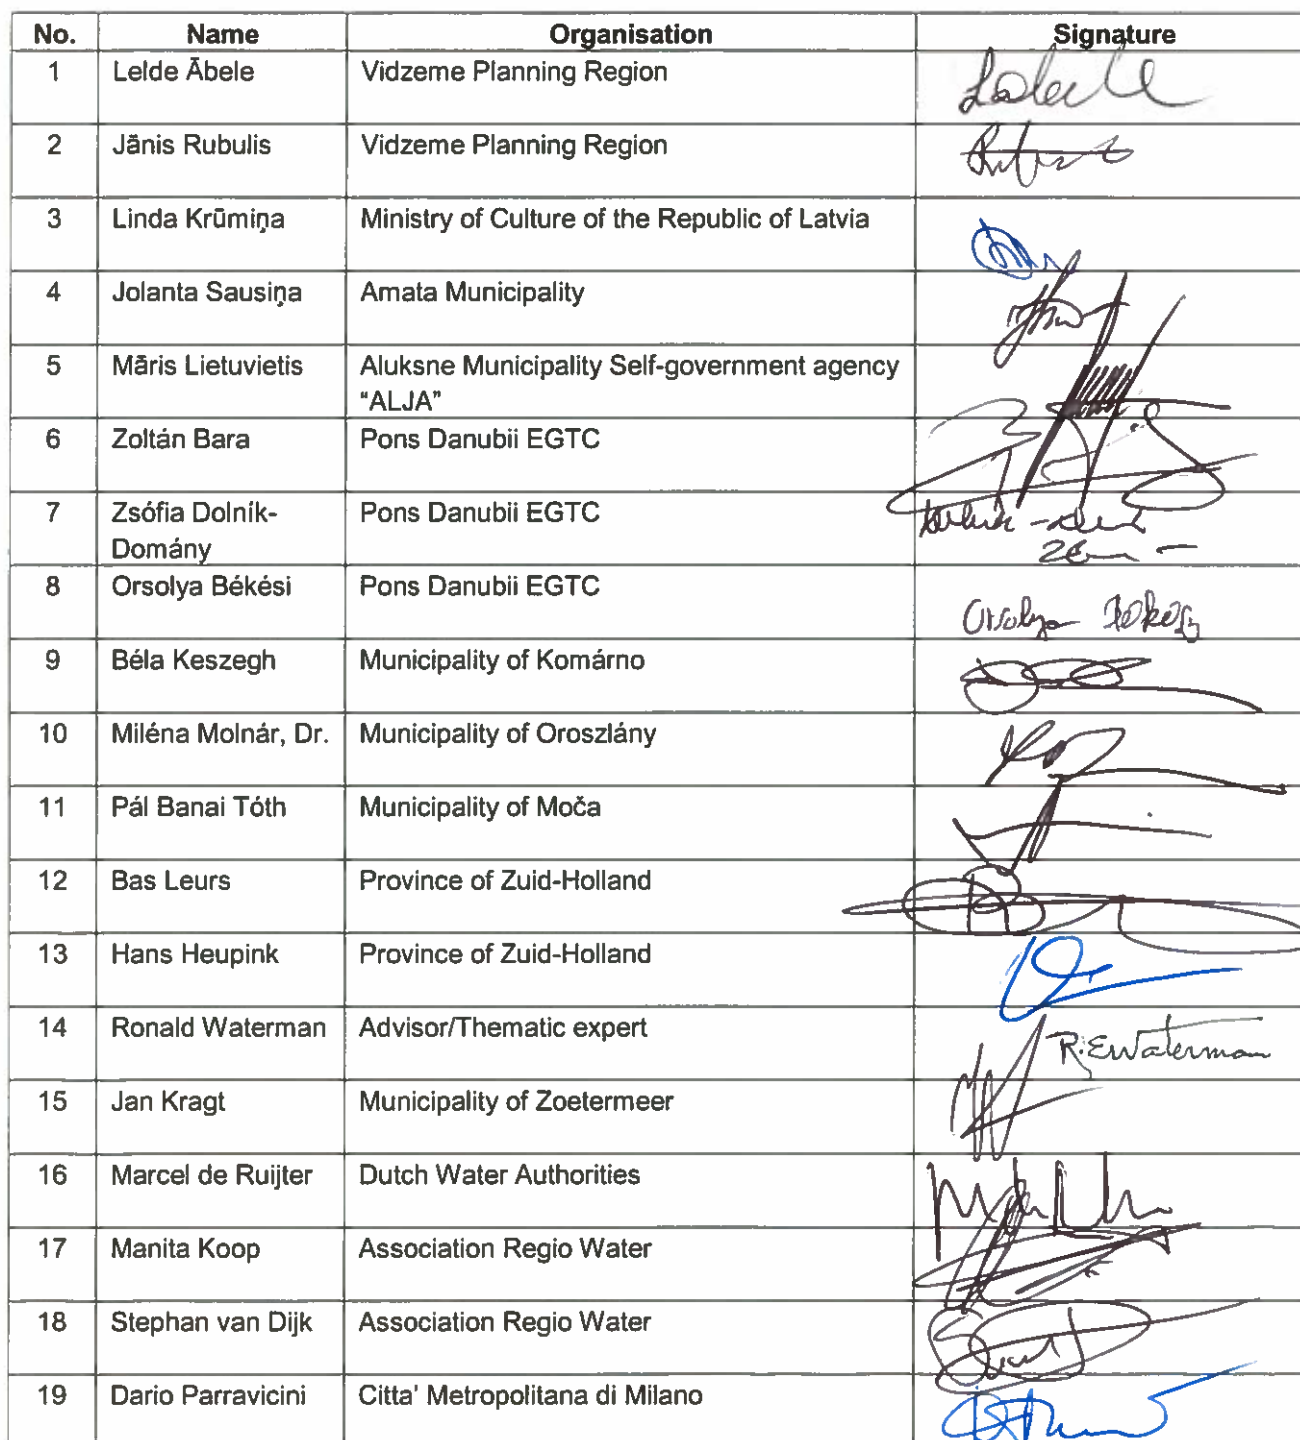 No. Name Organisation Signature
1 Lelde Ābele Vidzeme Planning Region
2 Jānis Rubulis Vidzeme Planning Region
3 Linda Krūmiņa Ministry of Culture of the Republic of Latvia
4 Jolanta Sausiņa Amata Municipality
5 Māris Lietuvietis Aluksne Municipality Self-government agency
“ALJA”
6 Zoltán Bara Pons Danubii EGTC
7 Zsófia Dolník- Pons Danubii EGTC
Domány
8 Orsolya Békési Pons Danubii EGTC Orsolya Békési
9 Béla Keszegh Municipality of Komárno
10 Miléna Molnár, Dr. Municipality of Oroszlány
11 Pál Banai Tóth Municipality of Moča
12 Bas Leurs Province of Zuid-Holland
13 Hans Heupink Province of Zuid-Holland
14 Ronald Waterman Advisor/Thematic expert R.EWaterman
15 Jan Kragt Municipality of Zoetermeer
16 Marcel de Ruijter Dutch Water Authorities
17 Manita Koop Association Regio Water
18 Stephan van Dijk Association Regio Water
19 Dario Parravicini Citta' Metropolitana di Milano